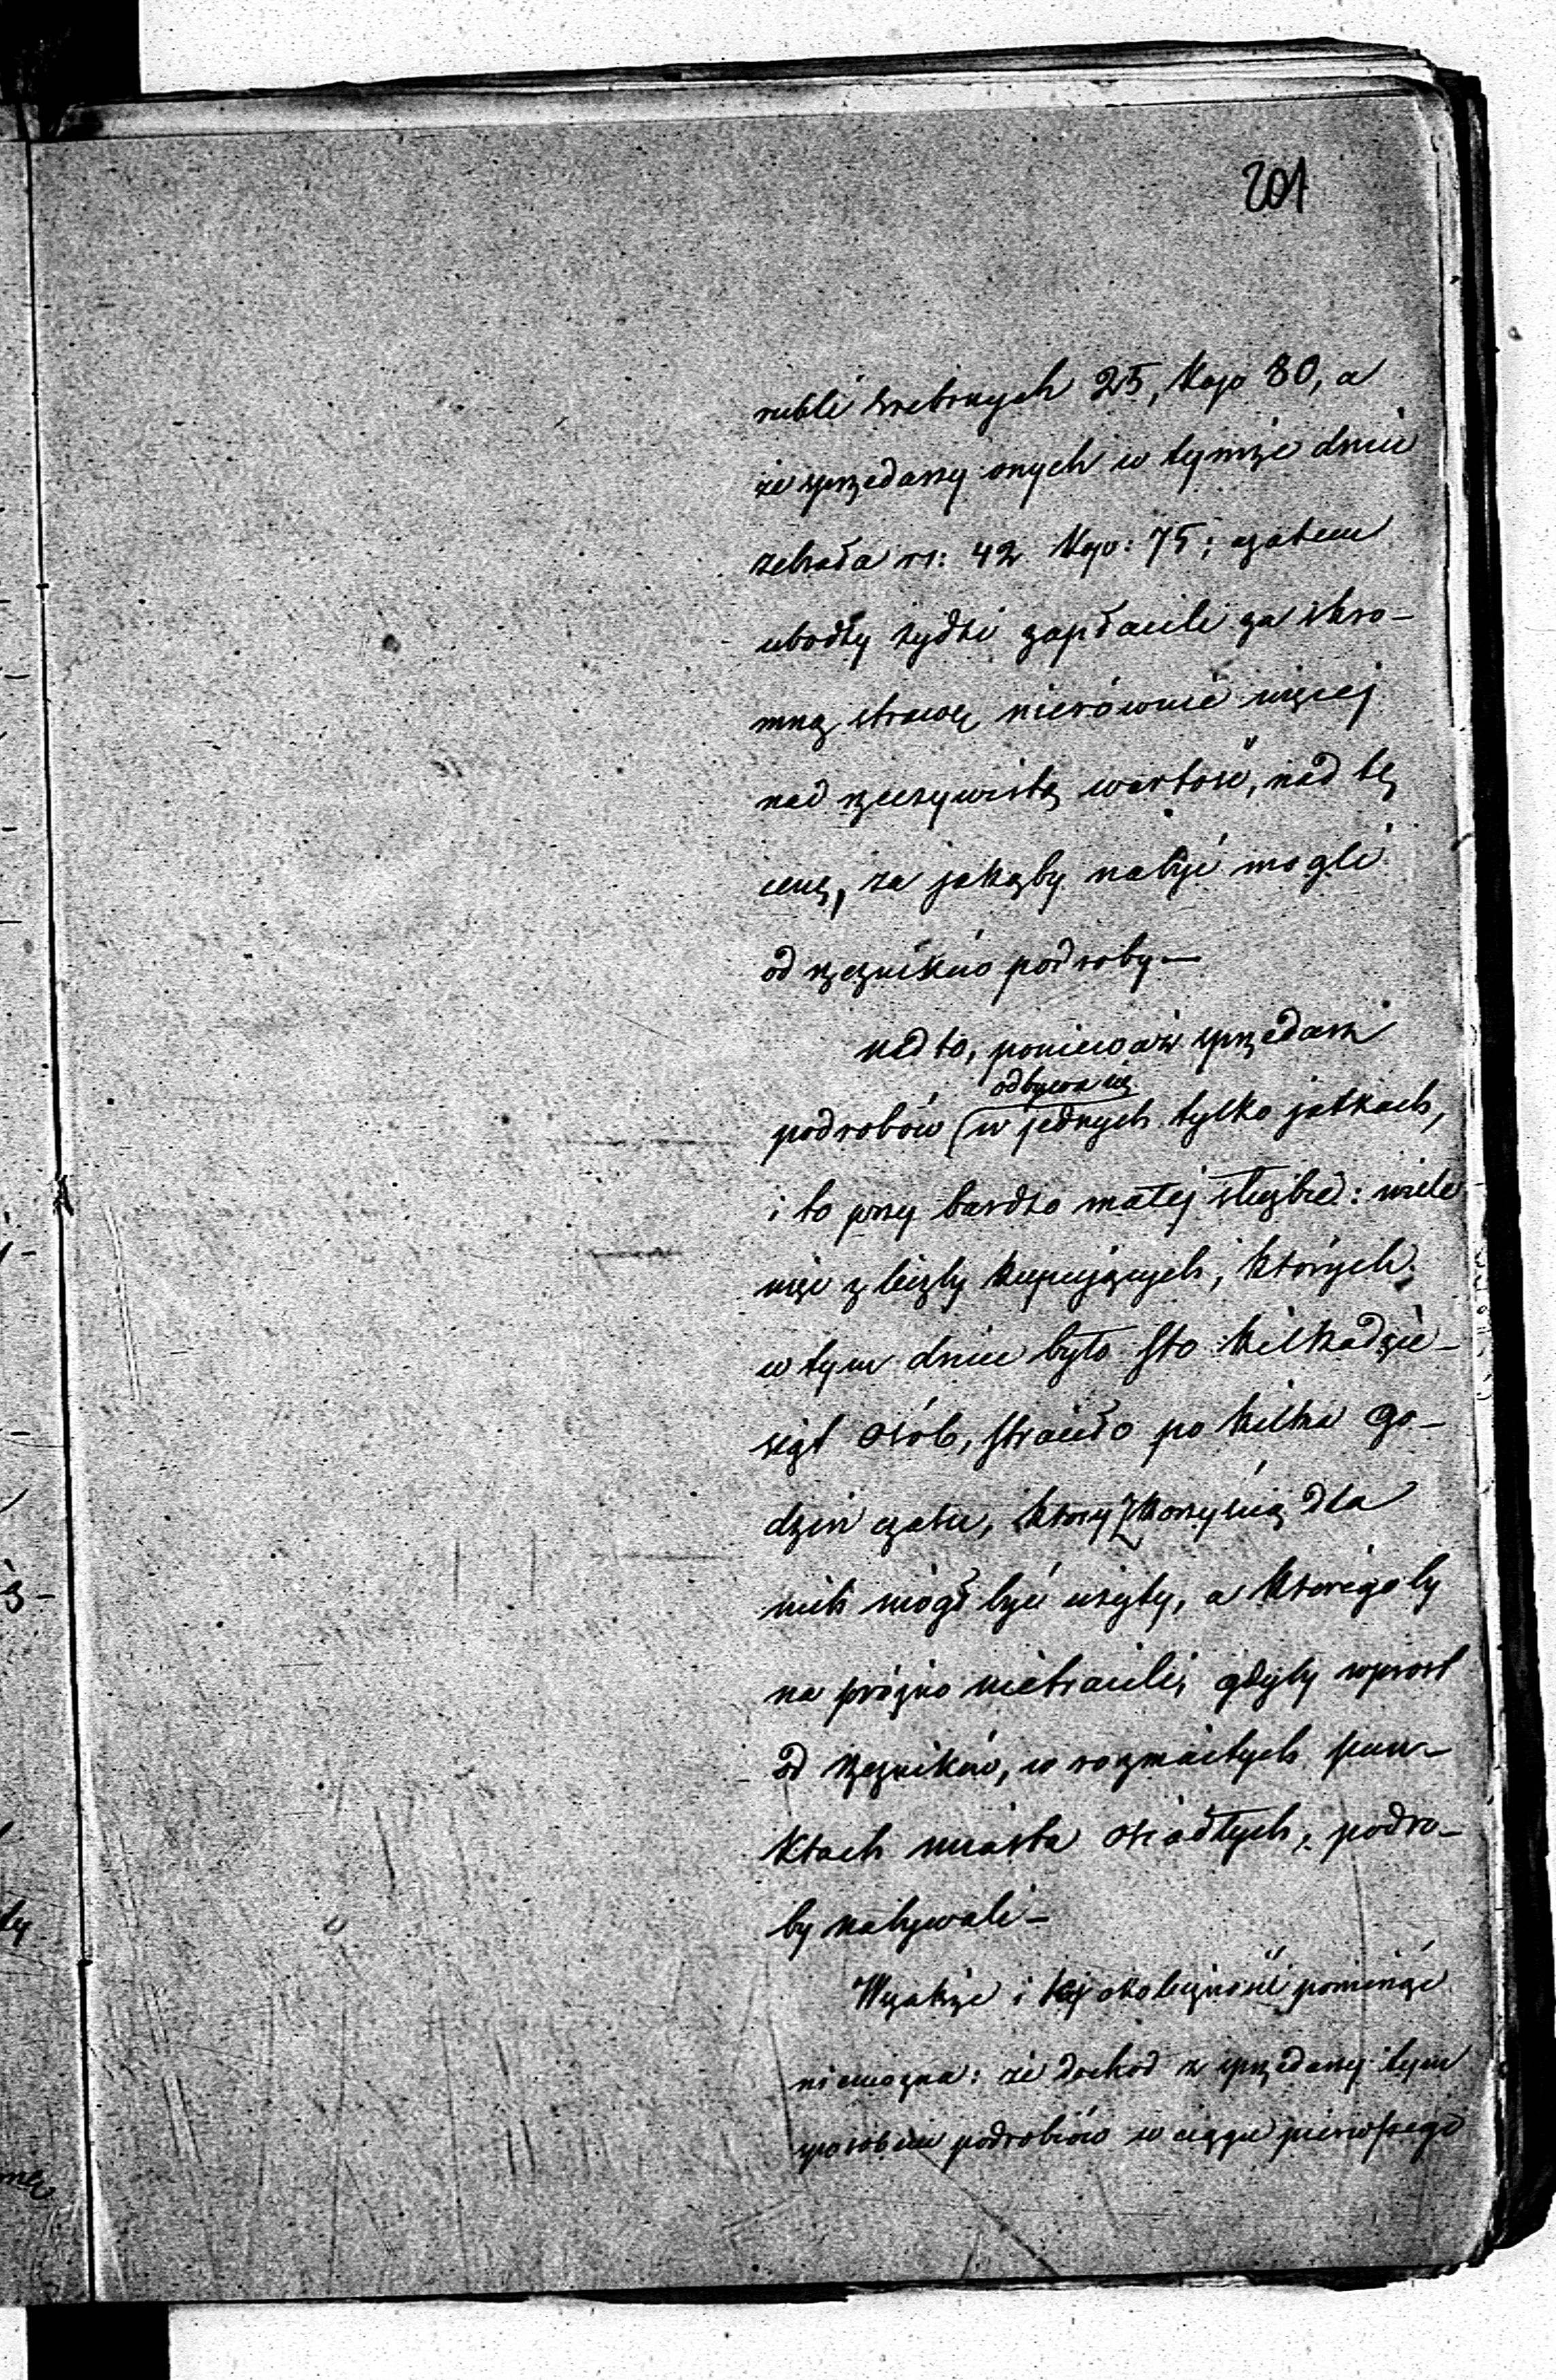 201
rubli srebrnych 25, kop 80, a
ze sprzedaży onych w tymże dniu
zebrała rs: 42 kop: 75; zatem
ubodzy żydzi zapłacili za skro-
mną strawę nierównie więcej
nad rzeczywistą wartość, nad tę
cenę, za jakąby nabyć mogli
od rzezników podroby —
nadto, ponieważ sprzedaż
odbywa się
podrobów w jednych tylko jatkach,
i to przy bardzo małej służbie: wiele
więc z liczby kupujących, których
w tym dniu było sto kilkadzie-
siąt osób, straciło po kilka go-
dzin czasu, który z korzyścią dla
nich mógł być użyty, a któregoby
na próżno nietracili, gdyby wprost
od rzezników, w rozmaitych pun-
ktach miasta osiadłych, podro-
by nabywali —
Wszakże i tej okoliczności pominąć
niemożna: że dochód z sprzedaży tym
sposobem podrobiów w ciągu pierwszego